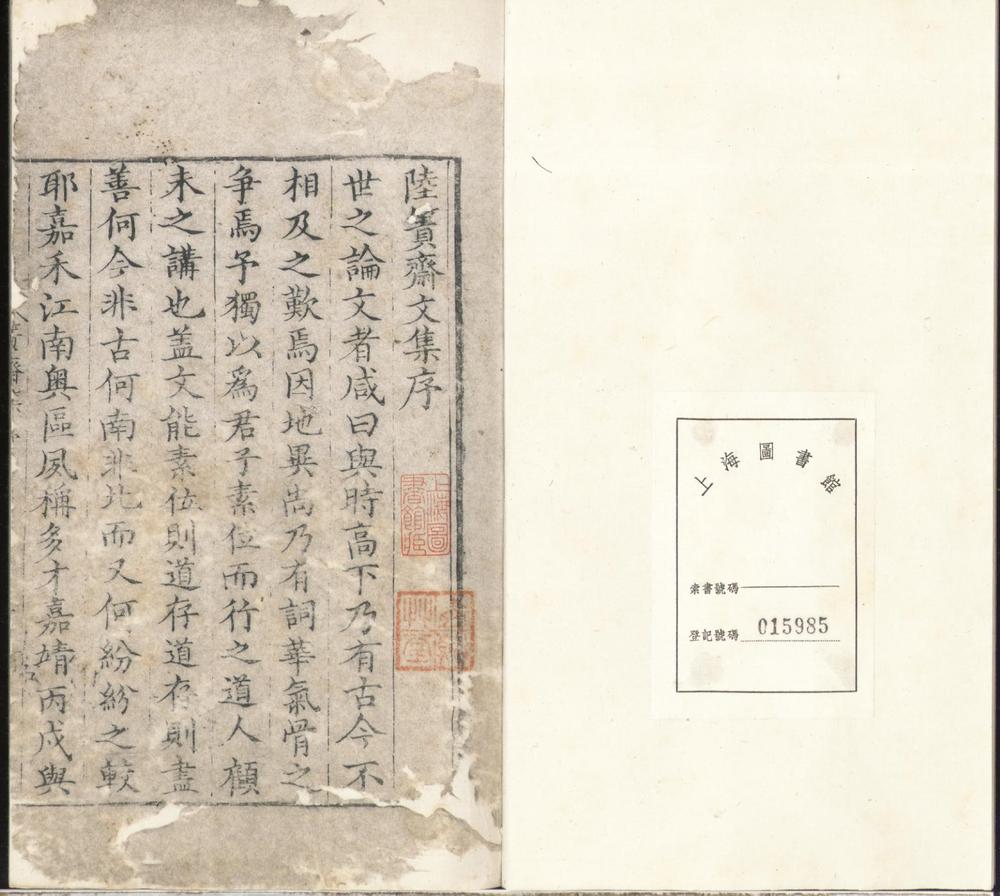 上海圖書館
索書號碼
登記號碼 015985
陸蕢齋文集序
世之論文者咸曰與時高下乃有古今不
相及之歎焉因地異尚乃有詞華氣骨之
争焉予獨以爲君子素位而行之道人顧
未之講也盖文能素位則道存道存則盡
善何今非古何南非北而又何紛紛之較
耶嘉禾江南奥區夙稱多才嘉靖丙戌與
上海圖書館藏